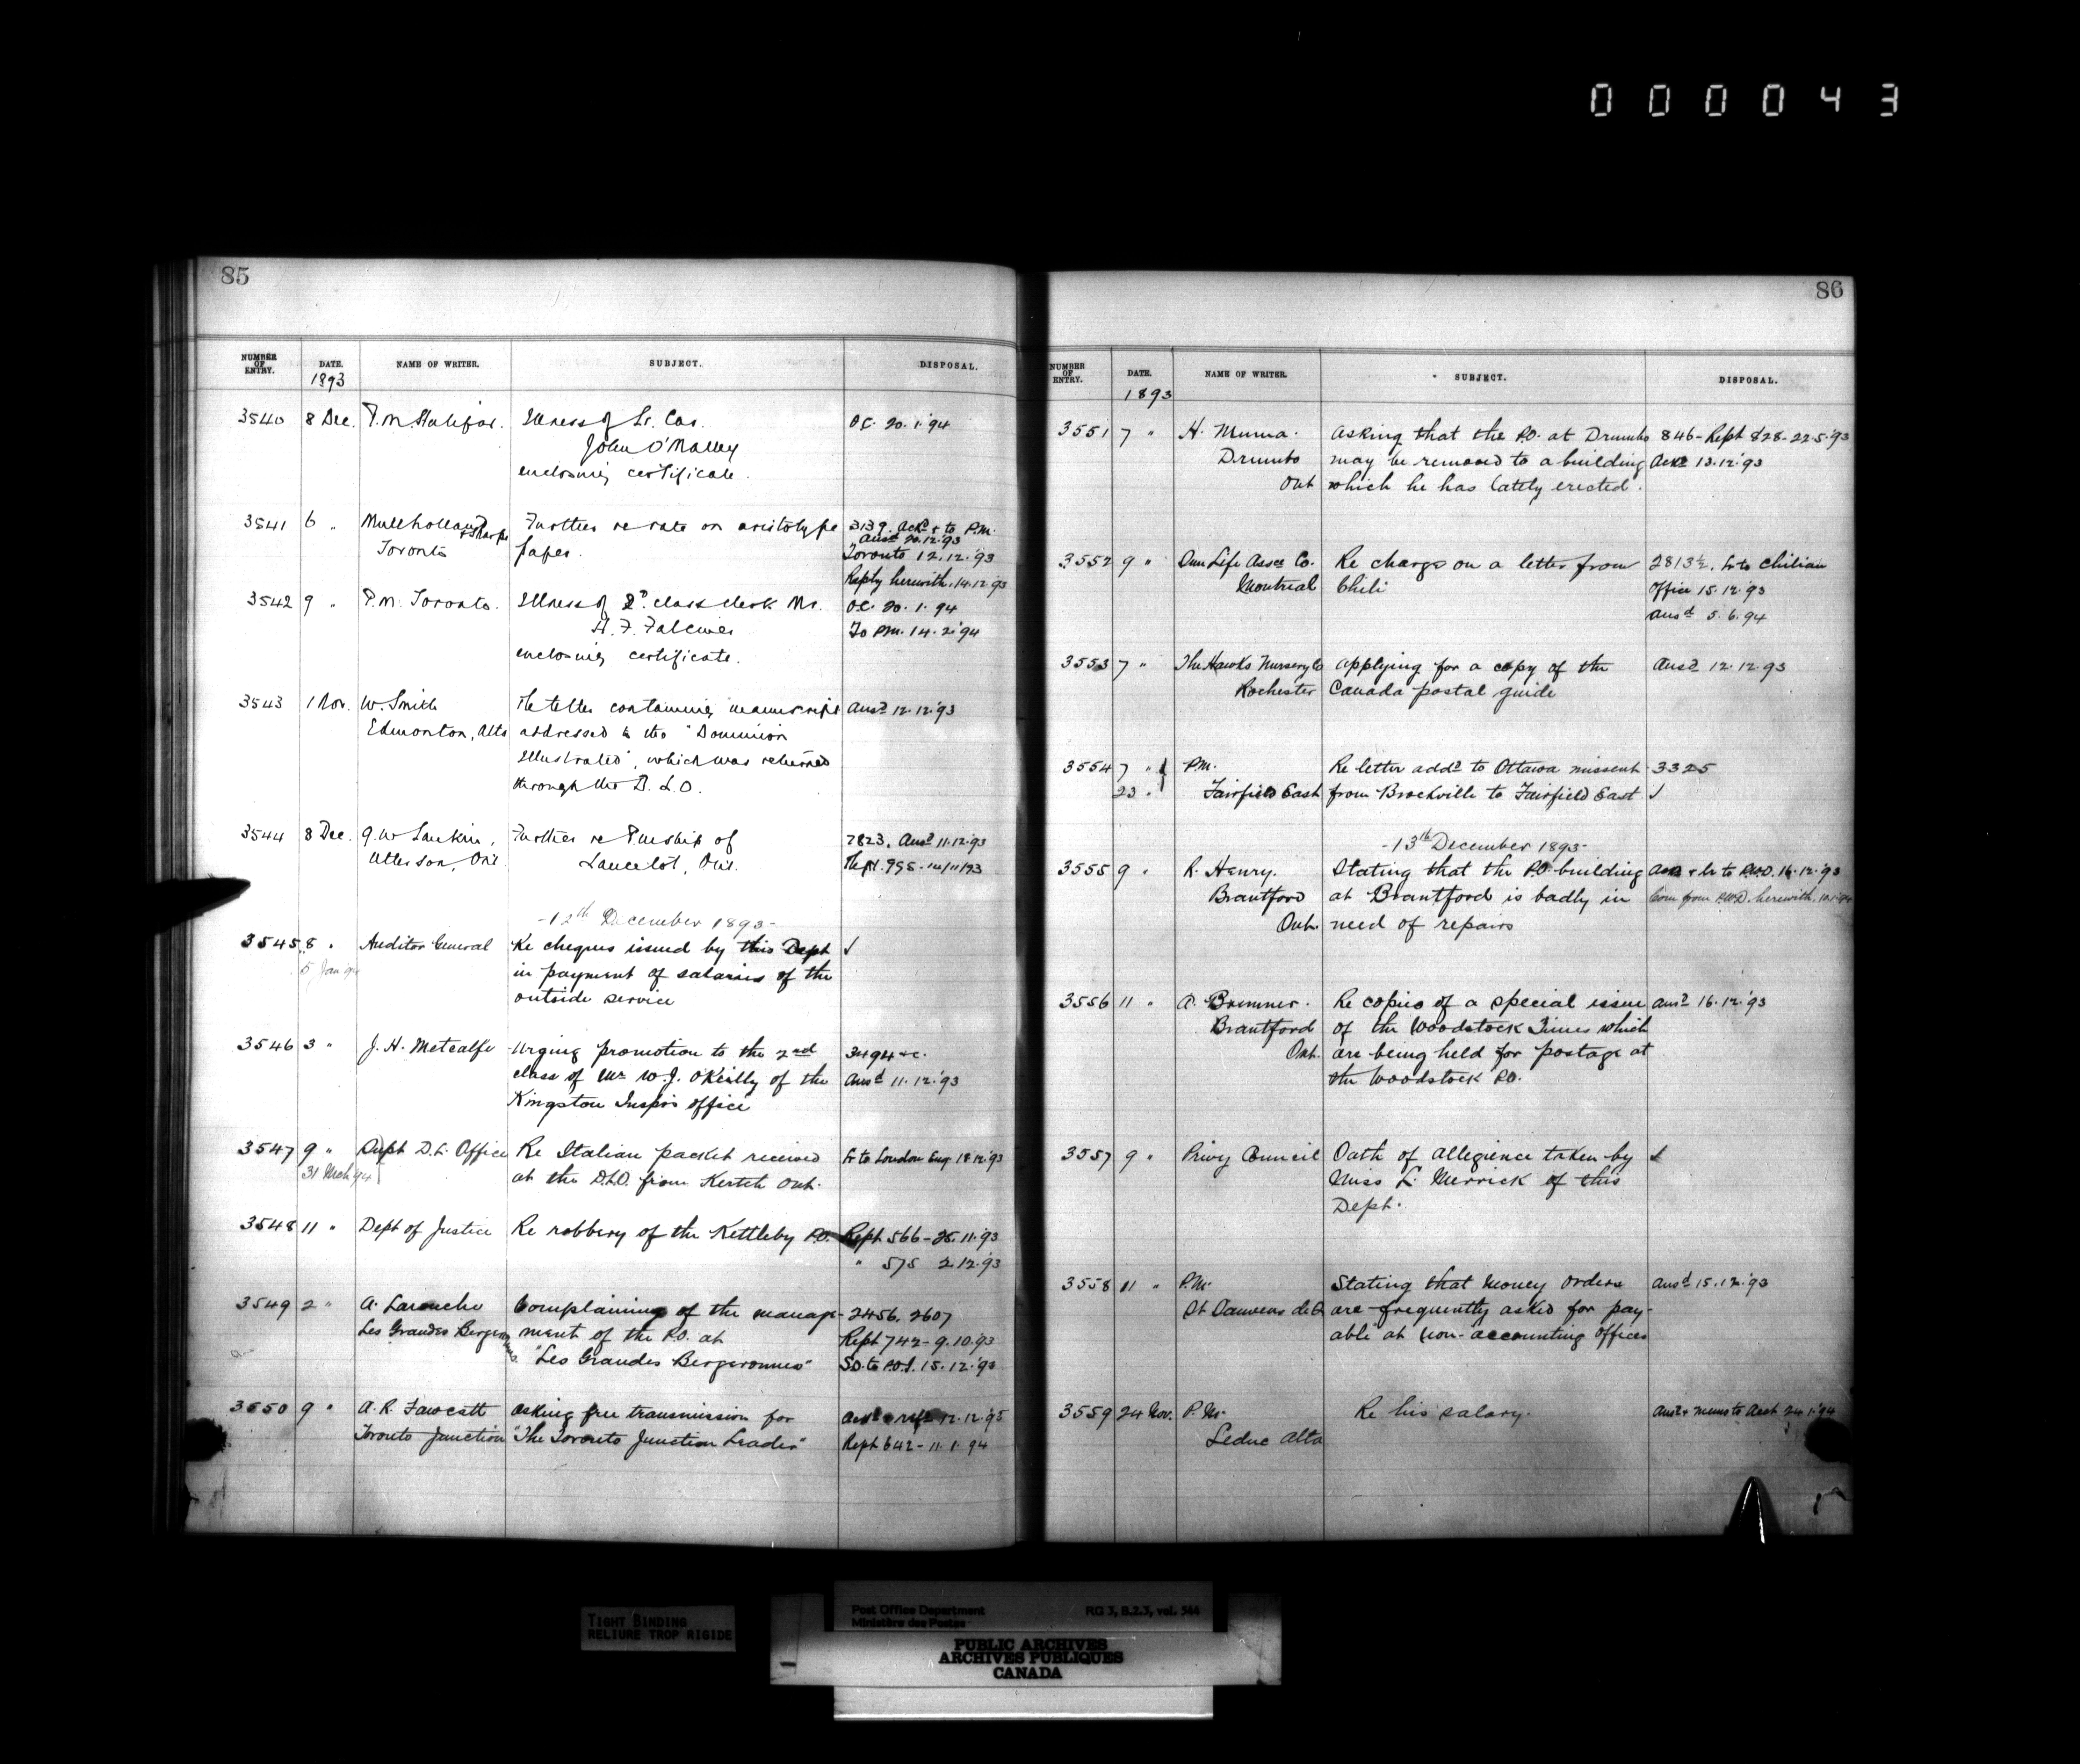 000043
85
NUMBER OF ENTRY. DATE. NAME OF WRITER. SUBJECT. DISPOSAL.
1893
3540 8 Dec. P.M. Halifax. Illness of Lr. Car. O.C. 20.1.94
John O'Malley
enclosing certificate.
3541 6 " Mullholland & Sharpe Further re rate on aristotype 3139. Ackd & to P.M.
Toronto paper. Ansd 20.12.'93
Toronto 12.12.'93
Reply herewith. 14.12.93
3542 9 " P.M. Toronto. Illness of 2d class clerk Mr. O.C. 20.1.94
H. F. To P.M. 14.2.'94
enclosing certificate.
3543 1 Nov. W. Smith Re letter containing manuscript Ansd 12.12.'93
Edmonton, Alta addressed to the "Dominion
Illustrated", which was returned
through the D.L.O.
3544 8 Dec. Further re Pmship of 2823. Ansd 11.12.'93
Utterson, Ont. Lancelot, Ont.
-12th December 1893-
3545 8 " Auditor General Re cheques issued by this Dept ✓
5 Jan '94 in payment of salaries of the
outside service
3546 3 " J. H. Metcalfe Urging promotion to the 2nd 3494 &c.
class of Mr W. J. O'Reilly of the Ansd 11.12.'93
Kingston Inspr's office
3547 9 " Supt D.L. Office Re Italian packet received Lr to London Eng 18.12.93
31 Mch 94 at the D.L.O. from Kertch Ont.
3548 11 " Dept of Justice Re robbery of the Kettleby P.O. Rept 566-25.11.'93
" 575 2.12.'93
3549 2 " A. Larouche Complaining of the manage- 2456. 2607
Les Grandes Bergeronnes ment of the P.O. at Rept 742-9.10.'93
"Les Grandes Bergeronnes" S.O. to P.O.I. 15.12.'93
3550 9 " A. R. Fawcett Asking free transmission for
Toronto Junction "The Toronto Junction Leader" Rept 642-11.1.94
86
NUMBER OF ENTRY. DATE. NAME OF WRITER. SUBJECT. DISPOSAL.
1893
3551 7 " H. Muma. Asking that the P.O. at Drumbo 846-Rept 828-22.5.'93
Drumbo may be removed to a building Ackd 13.12.'93
Ont which he has lately erected.
3552 9 " Sun Life Assce Co. Re charge on a letter from 2813½. Lr to Chilian
Montreal Chili Office 15.12.'93
Ansd 5.6.94
3553 7 " The Hawks Nursery Co Applying for a copy of the Ansd 12.12.93
Rochester Canada postal guide
3554 7 " P.M. Re letter addd to Ottawa missent 3325
23 " Fairfield East from Brockville to Fairfield East ✓
-13th December 1893-
3555 9 " R. Henry. Stating that the P.O. building & lr to P.W.D. 16.12.'93
Brantford at Brantford is badly in Com from P.W.D. herewith.
Ont. need of repairs
3556 11 " A. Bremner. Re copies of a special issue Ansd 16.12.'93
Brantford of the Woodstock Times which
Ont. are being held for postage at
the Woodstock P.O.
3557 9 " Privy Council Oath of allegience taken by ✓
Miss L. Merrick of this
Dept.
3558 11 " P.M. Stating that money orders Ansd 15.12.'93
St are frequently asked for pay-
able at non-accounting offices
3559 24 Nov. P.M. Re his salary. Ansd & memo to Acct 24.1.94
Leduc Alta
TIGHT BINDING
RELIURE TROP RIGIDE
Post Office Department RG 3, B.2.3, vol. 544
Ministère des Postes
PUBLIC ARCHIVES
ARCHIVES PUBLIQUES
CANADA